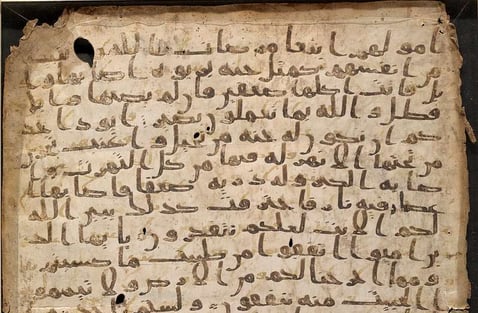 امولهم ابتغا مرضات الله وتثبيتا
من انفسهم كمثل جنه بربوه اصابها وا
بل فاتت اكلها ضعفين فان لم يصبها وابل
فطل والله بما تعملون بصير ايود احد
كم ان تكون له جنه من نخيل واعنب تجري
من تحتها الانهر له فيها من كل الثمرت وا
صابه الكبر وله ذريه ضعفا فاصابها ا
عصار فيه نار فاحترقت كذلك يبين الله
لكم الايت لعلكم تتفكرون يايها الذ
ين امنوا انفقوا من طيبت ما كسبتم
ومما اخرجنا لكم من الارض ولا تيمموا
الخبيث منه تنفقون ولستم